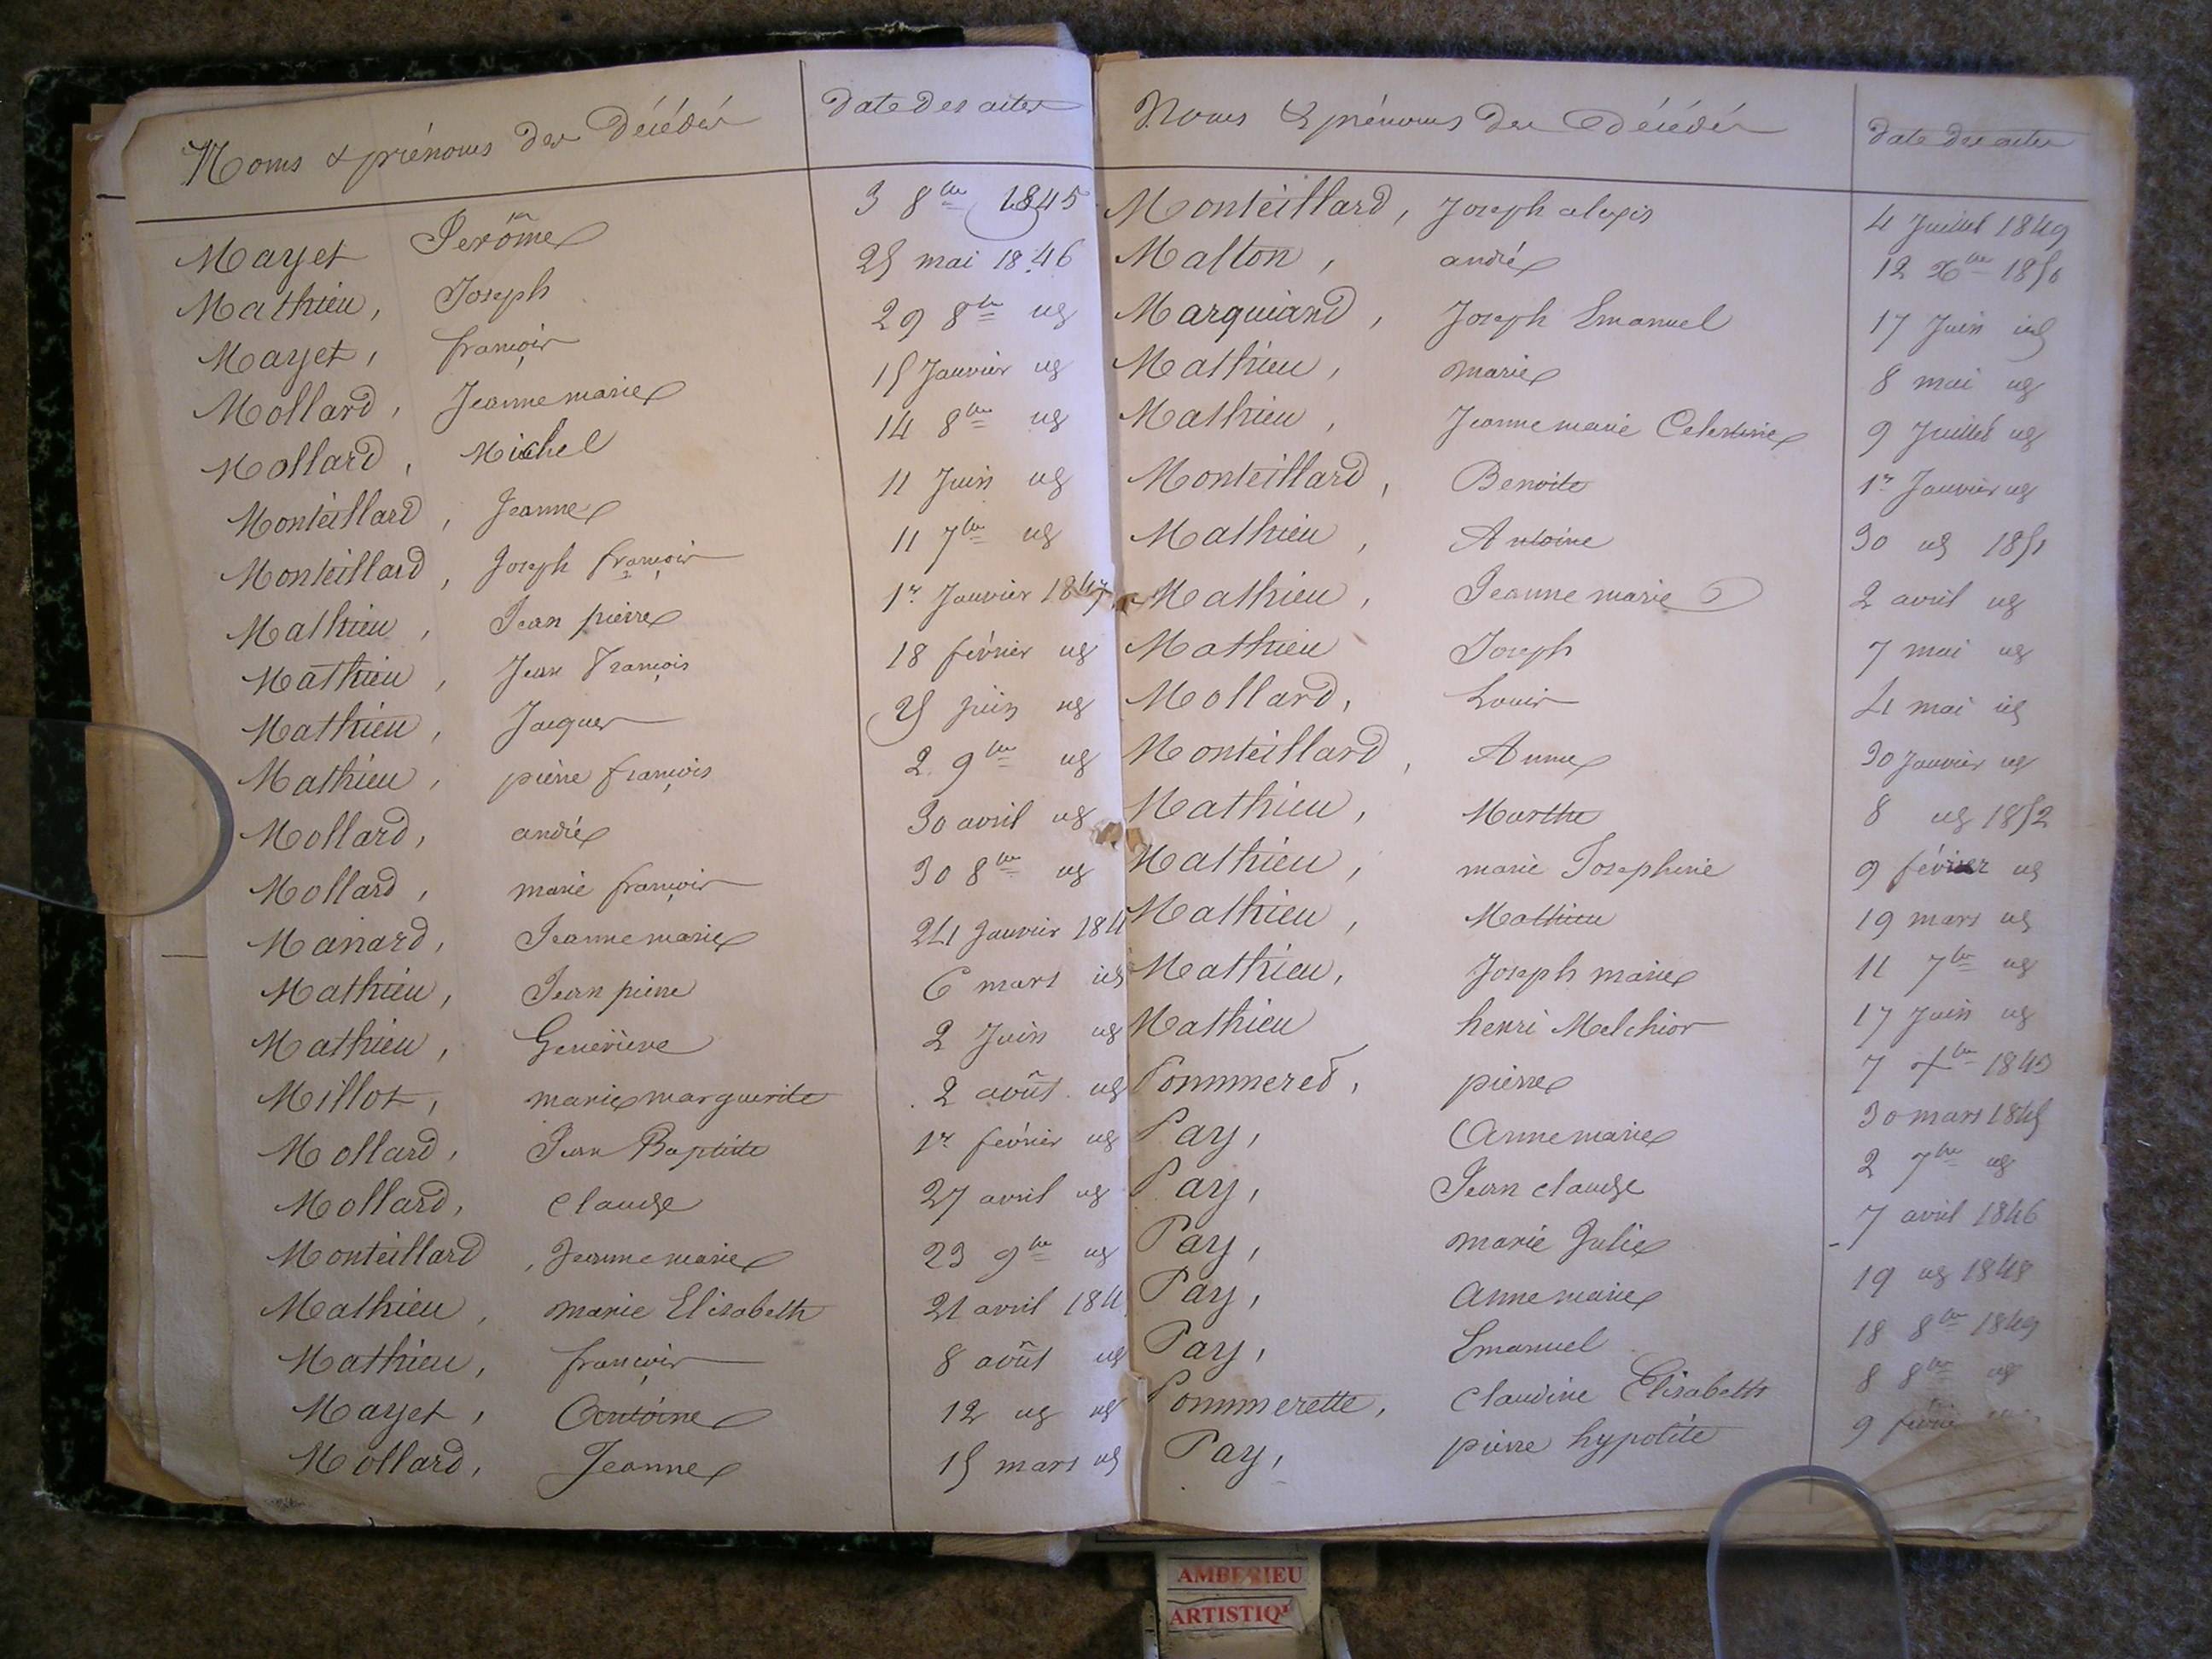 Noms & prénoms des Décédés Date des actes
Mayet Jérôme 3 8bre 1845
Mathieu, Joseph 25 mai 1846
Mayet, françois 29 8bre ug
Mollard, Jeanne marie 15 Janvier ug
Mollard, Michel 14 8bre ug
Monteillard, Jeanne 11 Juin ug
Monteillard, Joseph françois 11 7bre ug
Mathieu, Jean pierre 1r Janvier 1847
Mathieu, Jean François 18 février ug
Mathieu, Jacques 25 juin ug
Mathieu, pierre françois 2 9bre ug
Mollard, andré 30 avril ug
Mollard, marie françois 30 8bre ug
Manard, Jeanne marie 24 Janvier 184
Mathieu, Jean pierre 6 mars ug
Mathieu, Geneviève 2 Juin ug
Millot, marie marguerite 2 août ug
Mollard, Jean Baptiste 1r février ug
Mollard, Claude 27 avril ug
Monteillard, Jeanne marie 23 9bre ug
Mathieu, marie Elisabeth 21 avril 184
Mathieu, françois 8 août ug
Mayet, Antoine 12 ug ug
Mollard, Jeanne 15 mars ug
Noms & prénoms des Décédés Date des actes
Monteillard, Joseph alexis 4 Juillet 1849
Malton, andré 12 Xbre 1850
Marquiand, Joseph Emanuel 17 Juin ug
Mathieu, marie 8 mai ug
Mathieu, Jeanne marie Celestine 9 Juillet ug
Monteillard, Benoite 1r Janvier ug
Mathieu, Antoine 30 ug 1851
Mathieu, Jeanne marie 2 avril ug
Mathieu Joseph 7 mai ug
Mollard, Louis 4 mai ug
Monteillard, Anne 30 Janvier ug
Mathieu, Marthe 8 ug 1852
Mathieu, marie Josephine 9 février ug
Mathieu, Mathieu 19 mars ug
Mathieu, Joseph marie 11 7bre ug
Mathieu henri Melchior 17 Juin ug
Pommered, pierre 7 Xbre 1843
Pay, Anne marie 30 mars 1845
Pay, Jean claude 2 7bre ug
Pay, marie Julie 7 avril 1846
Pay, Anne marie 19 ug 1848
Pay, Emanuel 18 8bre 1849
Pommerette, Claudine Elisabeth 8 8bre ug
Pay, pierre hypolite 9 févrie
AMBERIEU
ARTISTIQU